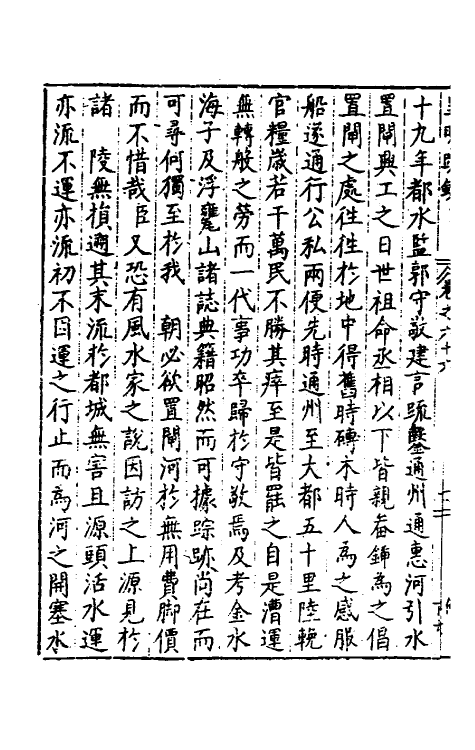 皇明疏鈔
卷之六十六
十九年都水監郭守敬建言疏鑿通州通惠河引水
置閘興工之日世祖命丞相以下皆親畚鍤為之倡
置閘之處往徃於地中得舊時磚木時人為之感服
船遂通行公私兩便先時通州至大都五十里陸輓
官糧歲若干萬民不勝其瘁至是皆罷之自是漕運
無轉般之勞而一代事功卒歸於守敬焉及考金水
海子及浮甕山諸誌典籍昭然而可據踪跡尚在而
可尋何獨至於我　朝必欲置閘河於無用費脚價
而不惜哉臣又恐有風水家之說因訪之上源見於
諸　陵無損遡其末流於都城無害且源頭活水運
亦流不運亦流初不因運之行止而為河之開塞水